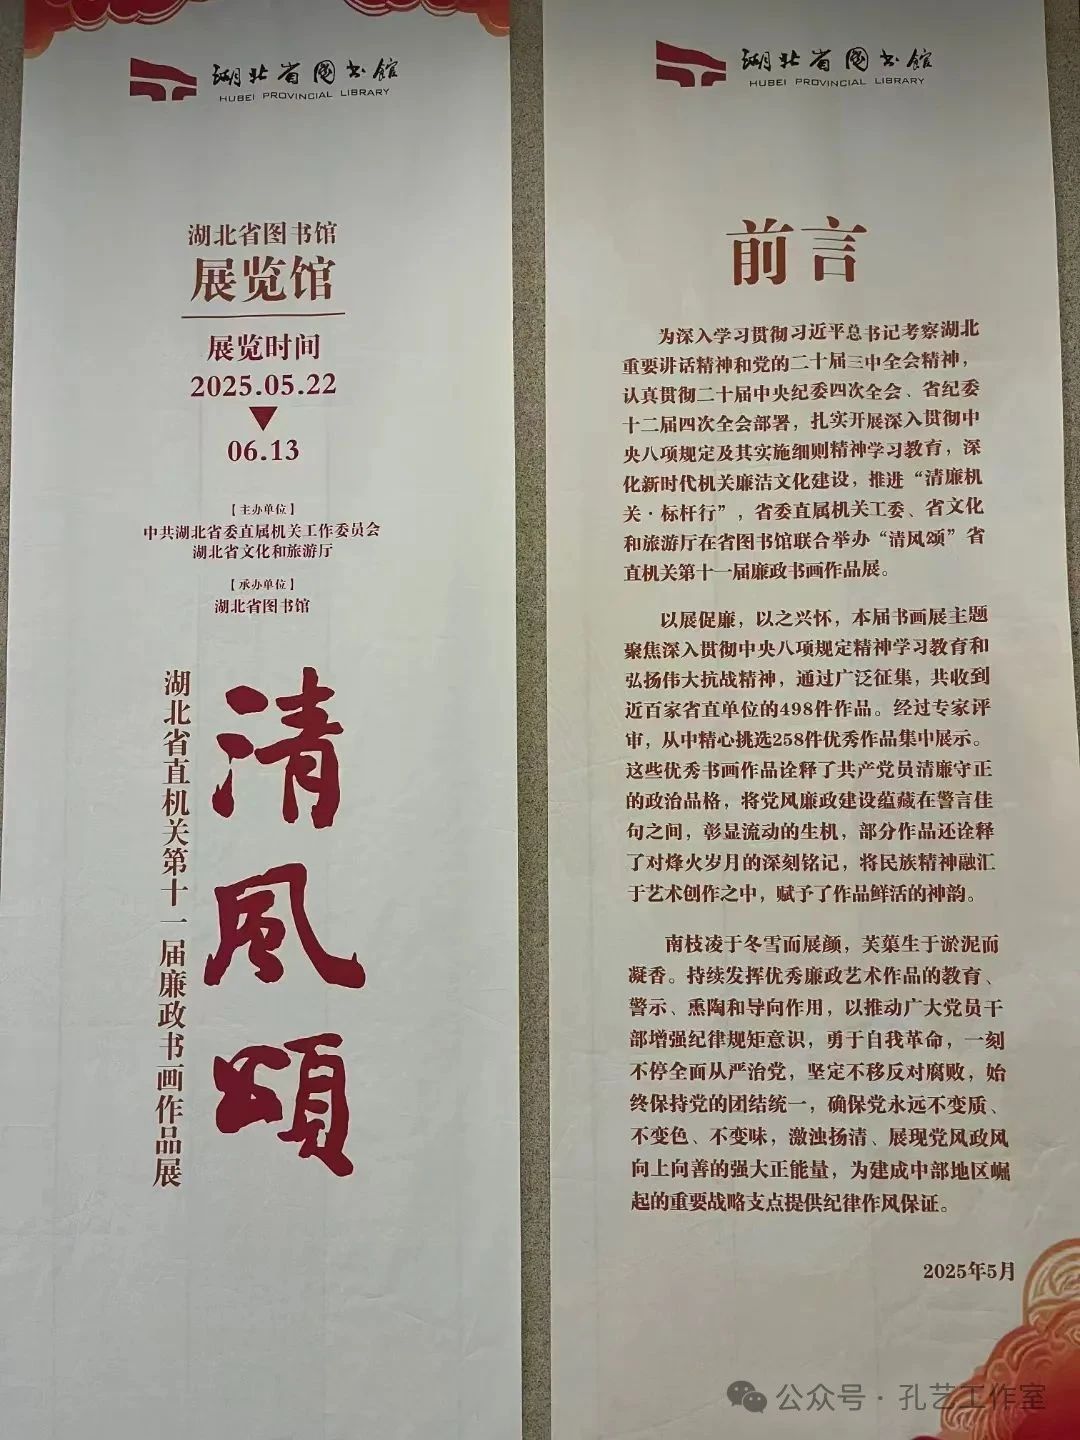 湖北省图书馆
HUBEI PROVINCIAL LIBRARY
湖北省图书馆
展览馆
展览时间
2025.05.22
06.13
【主办单位】
中共湖北省委直属机关工作委员会
湖北省文化和旅游厅
【承办单位】
湖北省图书馆
清風頌
湖北省直机关第十一届廉政书画作品展
湖北省图书馆
HUBEI PROVINCIAL LIBRARY
前言
为深入学习贯彻习近平总书记考察湖北
重要讲话精神和党的二十届三中全会精神，
认真贯彻二十届中央纪委四次全会、省纪委
十二届四次全会部署，扎实开展深入贯彻中
央八项规定及其实施细则精神学习教育，深
化新时代机关廉洁文化建设，推进“清廉机
关·标杆行”，省委直属机关工委、省文化
和旅游厅在省图书馆联合举办“清风颂”省
直机关第十一届廉政书画作品展。
以展促廉，以之兴怀，本届书画展主题
聚焦深入贯彻中央八项规定精神学习教育和
弘扬伟大抗战精神，通过广泛征集，共收到
近百家省直单位的498件作品。经过专家评
审，从中精心挑选258件优秀作品集中展示。
这些优秀书画作品诠释了共产党员清廉守正
的政治品格，将党风廉政建设蕴藏在警言佳
句之间，彰显流动的生机，部分作品还诠释
了对烽火岁月的深刻铭记，将民族精神融汇
于艺术创作之中，赋予了作品鲜活的神韵。
南枝凌于冬雪而展颜，芙蕖生于淤泥而
凝香。持续发挥优秀廉政艺术作品的教育、
警示、熏陶和导向作用，以推动广大党员干
部增强纪律规矩意识，勇于自我革命，一刻
不停全面从严治党，坚定不移反对腐败，始
终保持党的团结统一，确保党永远不变质、
不变色、不变味，激浊扬清、展现党风政风
向上向善的强大正能量，为建成中部地区崛
起的重要战略支点提供纪律作风保证。
2025年5月
公众号·孔艺工作室